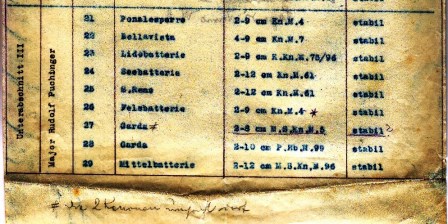 Unterabschnitt III
Major Rudolf Puchinger
21 Ponalesperre 2-9 cm Kn.M.4 stabil
22 Bellavista 4-9 cm Kn.M.7 stabil
23 Lidobatterie 2-9 cm R.Kn.M.75/96 stabil
24 Seebatterie 2-12 cm Kn.M.61 stabil
25 S.Rene 2-12 cm Kn.M.61 stabil
26 Felsbatterie 2-9 cm Kn.M.4 * stabil
27 Garda # 2-8 cm M.S.Kn.M.5 stabil
28 Garda 2-10 cm P.Hb.M.99 stabil
29 Mittelbatterie 2-12 cm M.S.Kn.M.96 stabil
# 2 Kanonen